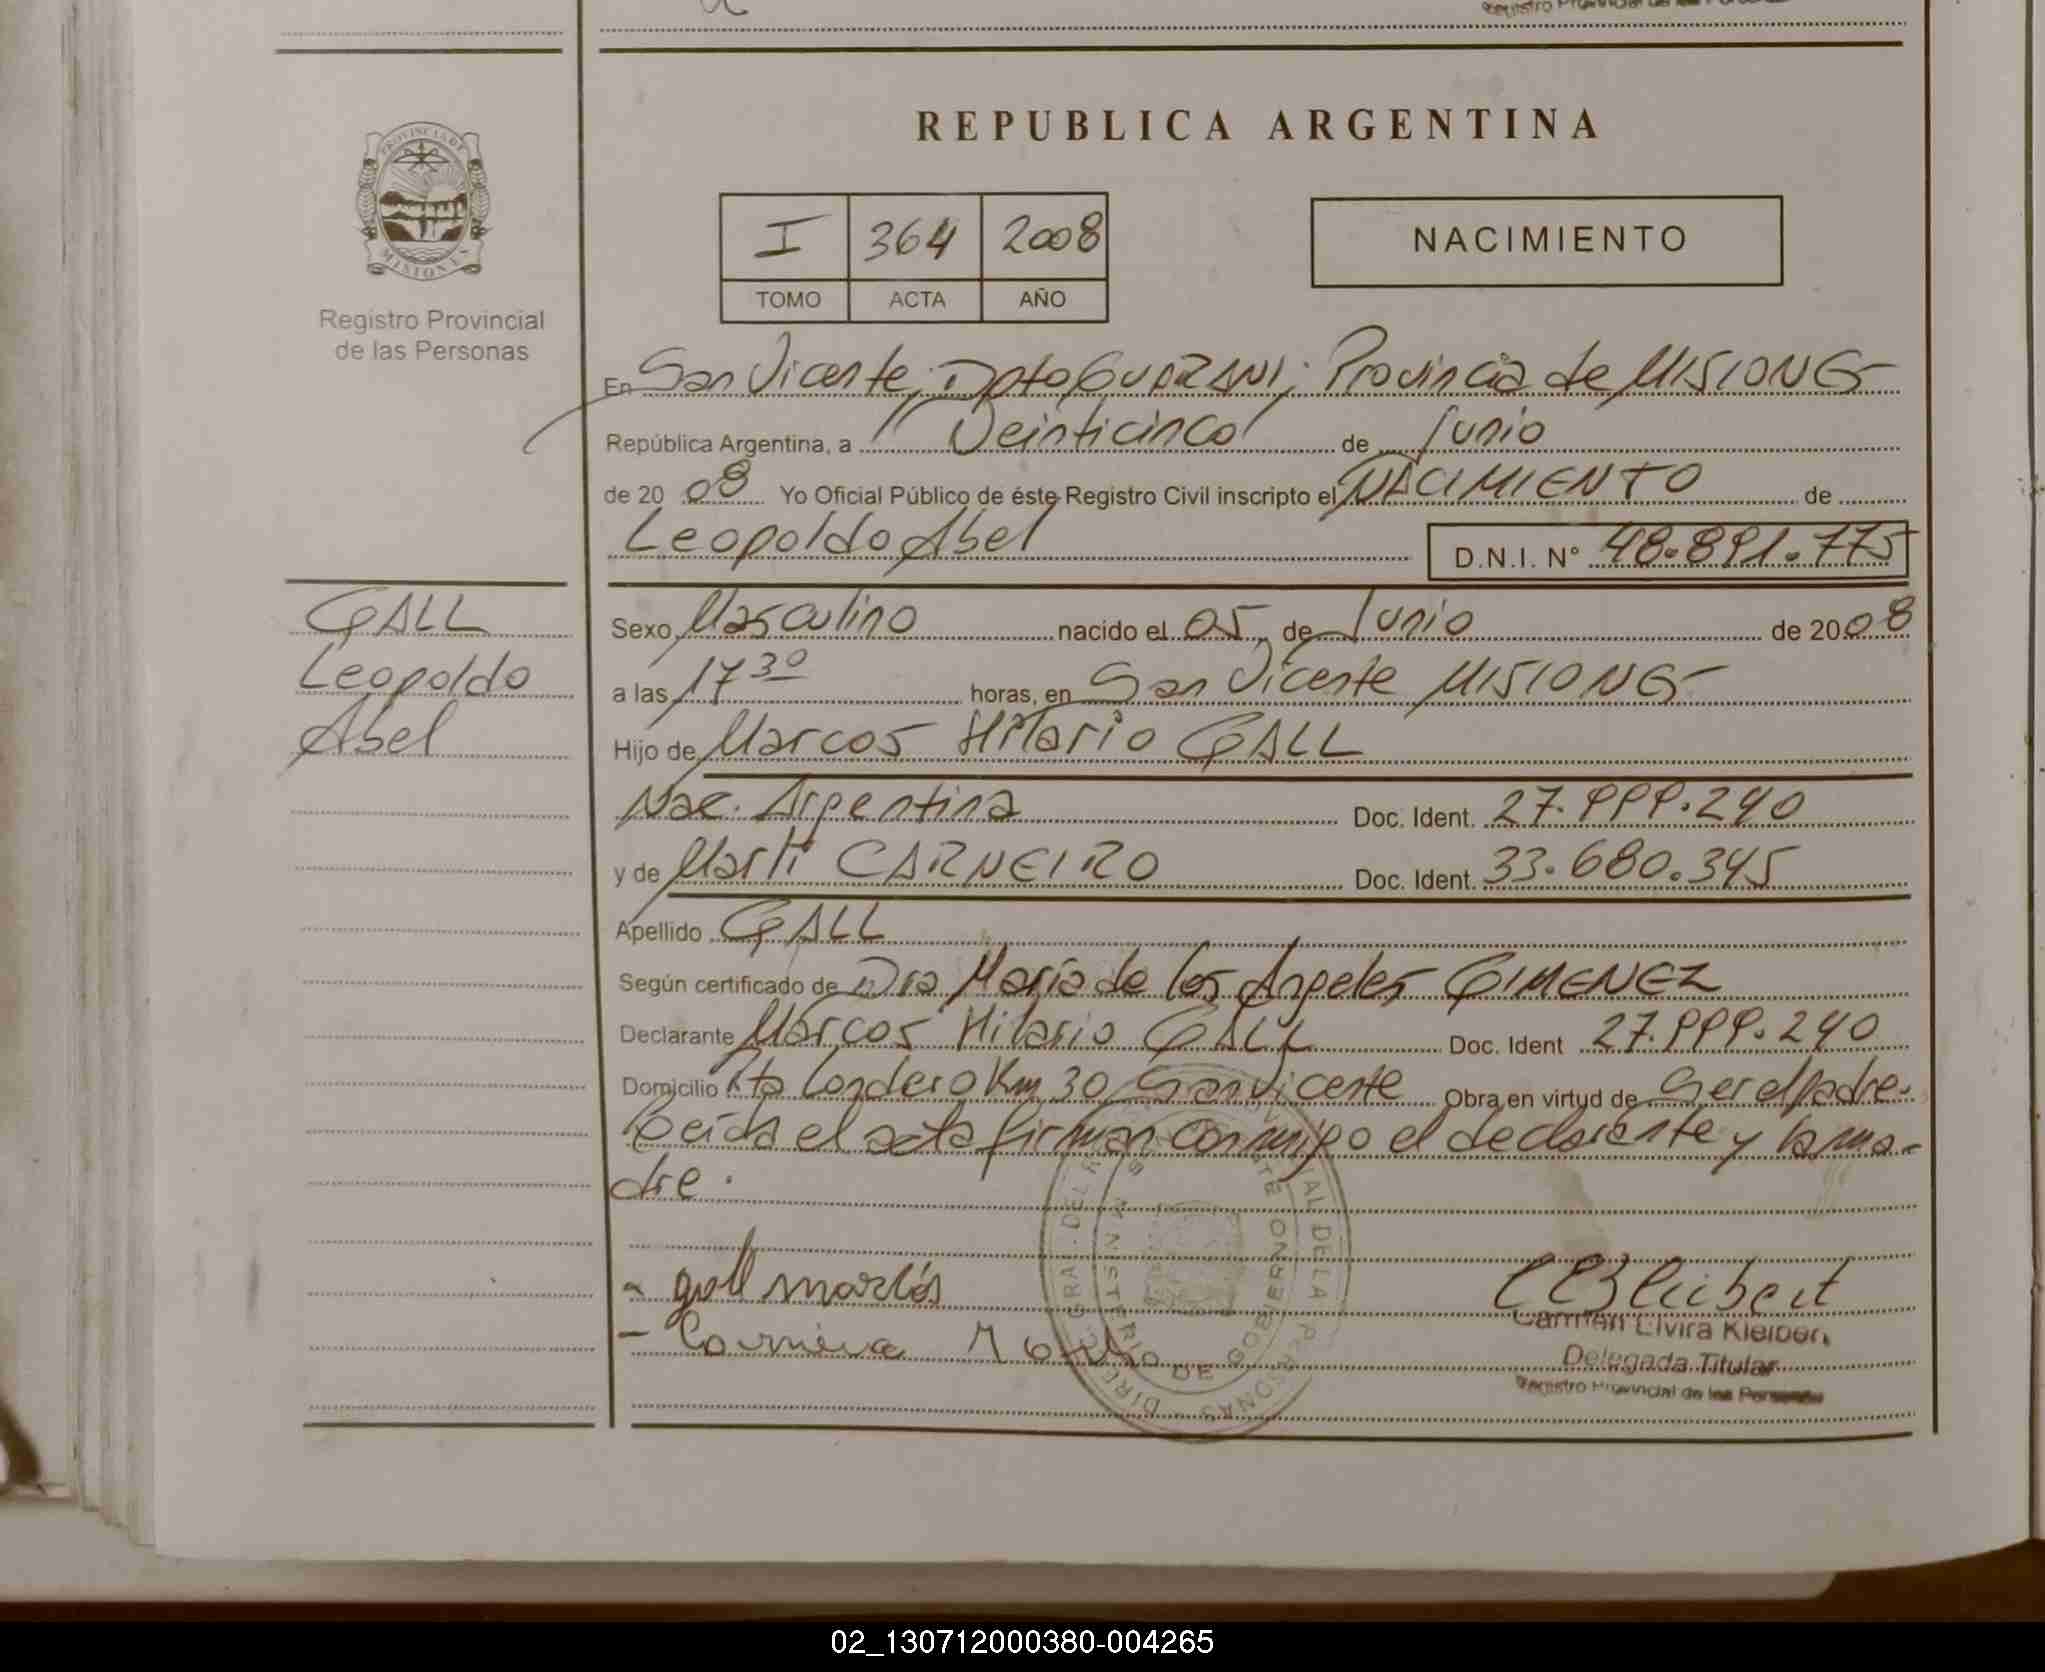 REPUBLICA ARGENTINA
PROVINCIA DE
MISIONES
Registro Provincial
de las Personas
I 364 2008
TOMO ACTA AÑO
NACIMIENTO
En San Vicente; Dpto GUARANI; Provincia de MISIONES
República Argentina, a Veinticinco de Junio
de 2008 Yo Oficial Público de éste Registro Civil inscripto el NACIMIENTO de
Leopoldo Abel D.N.I. N° 48.891.775
GALL
Leopoldo
Abel
Sexo Masculino nacido el 05 de Junio de 2008
a las 17 30 horas, en San Vicente MISIONES
Hijo de Marcos Hilario GALL
Nac. Argentina Doc. Ident. 27.999.240
y de Marli CARNEIRO Doc. Ident. 33.680.345
Apellido GALL
Según certificado de Dra María de los Angeles GIMENEZ
Declarante Marcos Hilario GALL Doc. Ident 27.999.240
Domicilio Londero Km 30 San Vicente Obra en virtud de Ser el padre.
Leída el acta firman conmigo el declarante y la ma-
dre.
gall marcos
Carmen Elvira Kleibert
Delegada Titular
Registro Provincial de las Personas
MINISTERIO DE GOBIERNO
02_130712000380-004265